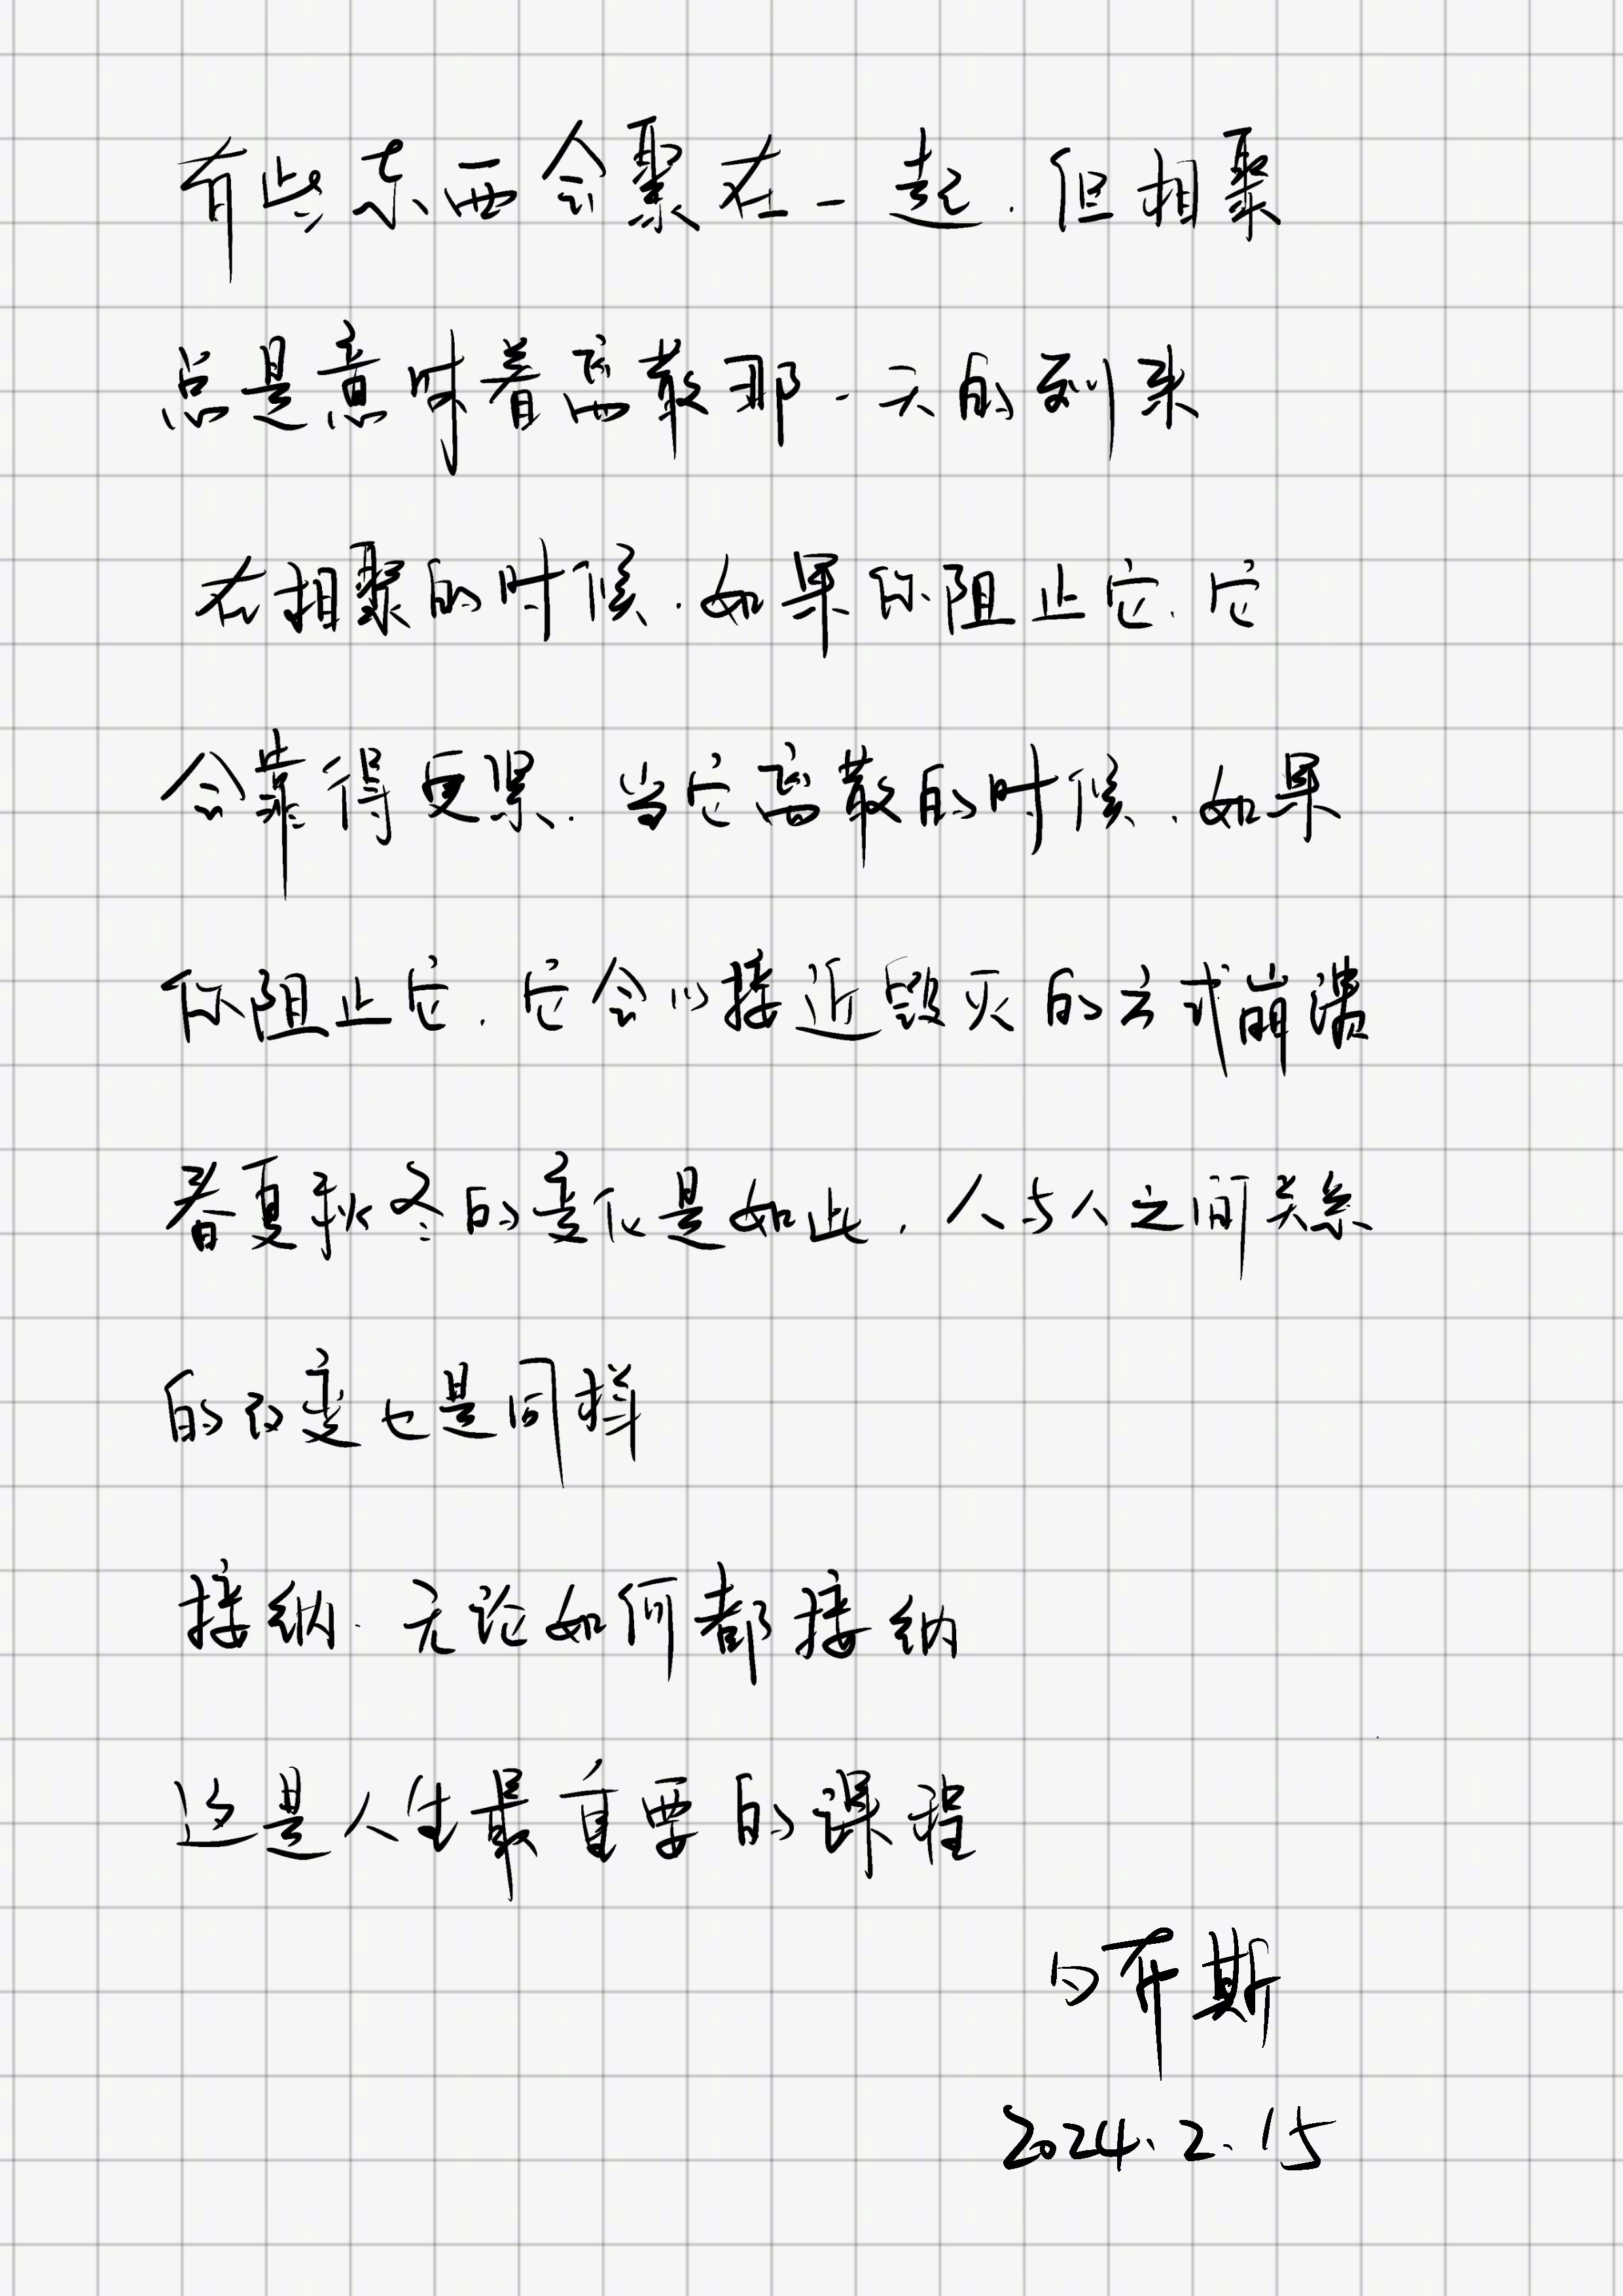 有些东西会聚在一起.但相聚
总是意味着离散那一天的到来
在相聚的时候.如果你阻止它.它
会靠得更紧.当它离散的时候.如果
你阻止它.它会以接近毁灭的方式崩溃
春夏秋冬的变化是如此.人与人之间关系
的改变也是同样
接纳.无论如何都接纳
这是人生最重要的课程
白乔斯
2024.2.15